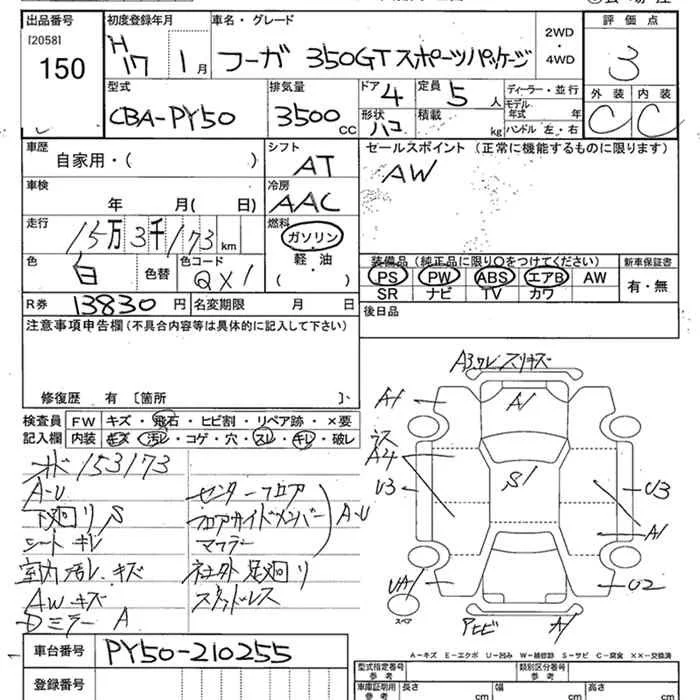 出品番号 初度登録年月 車名・グレード 2WD・4WD 評価点
[2058]
150 H17 1月 フーガ 350GTスポーツパッケージ 3
型式 排気量 ドア 定員 ディーラー・並行 外装 内装
CBA-PY50 3500cc 4 5人 モデル年式 年 C C
形状 ハコ 積載 kg ハンドル 左・右
車歴 シフト セールスポイント (正常に機能するものに限ります)
自家用・( ) AT AW
車検 冷房
年 月( 日) AAC
走行 燃料
15万3千173km ガソリン
色 色コード 軽・油
白 色替 QX1 ( )
装備品(純正品に限り○をつけてください) 新車保証書
PS PW ABS エアB AW 有・無
SR ナビ TV カワ
R券 13830円 名変期限 月 日 後日品
注意事項申告欄(不具合内容等は具体的に記入して下さい)
修復歴 有 〔箇所 〕
検査員 FW キズ・飛石・ヒビ割・リペア跡・×要
記入欄 内装 キズ・汚レ・コゲ・穴・スレ・キレ・破レ
153173
A-U センターフロア
下廻リS フロアサイドメンバー A-U
シートキレ マフラー
室内汚レ、キズ 社外足廻リ
AWキズ スタッドレス
Dミラー A
A3ワレスリキズ
A1 A1
A4 S1
U3 U3
A1
UA1 U2
スペア
Pヒビ A1
A-キズ E-エクボ U-凹み W-補修跡 S-サビ C-腐食 XX-交換済
車台番号 PY50-210255
登録番号
型式指定番号 参考 類別区分番号 参考
車庫証明用 参考 長さ cm 幅 cm 高さ cm